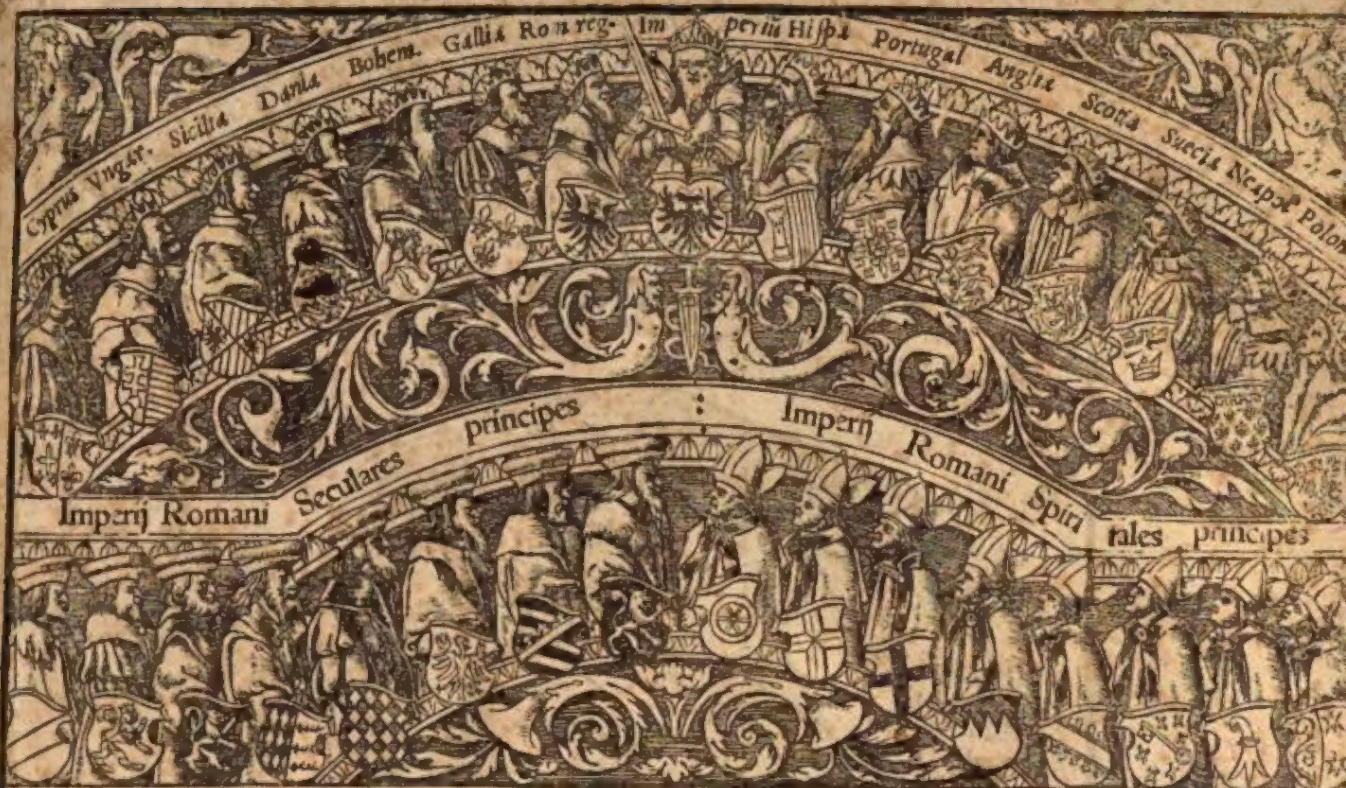 Cyprus Vngar. Sicilia Dania Bohem. Gallia Rom reg. Im periũ Hispa Portugal Anglia Scotia Suecia Neapol Polon
Imperij Romani Seculares principes : Imperij Romani Spiri tales principes